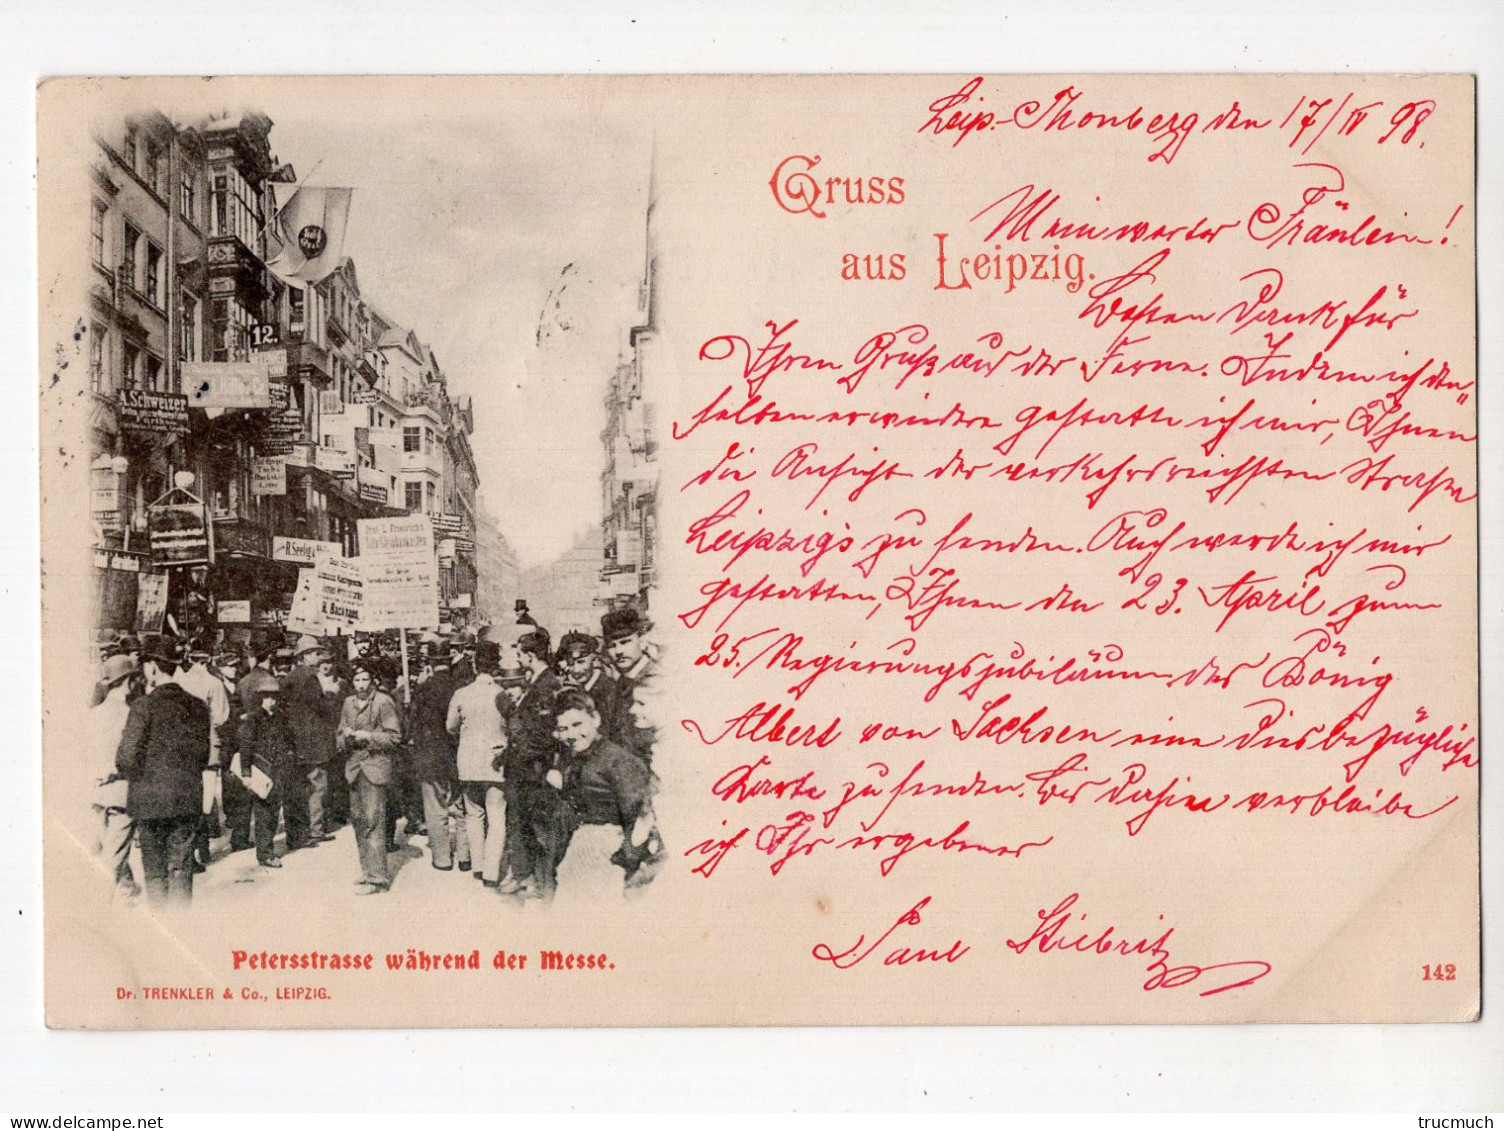 Leip.-Thonberg den 17/IV 98.
Gruss
aus Leipzig.
Mein werter Fräulein!
Besten Dank für
Ihren Gruß aus der Ferne. Indem ich den„
selben erwidere gestatte ich mir, Ihnen
die Ansicht der verkehrsreichsten Straße
Leipzig's zu senden. Auch werde ich mir
gestatten, Ihnen den 23. April zum
25. Regierungsjubiläum des König
Albert von Sachsen eine diesbezügliche
Karte zu senden. Bis dahin verbleibe
ich Ihr ergebener
Paul Stiebritz
12.
A. Schweizer
Fürth
R. Seelig
H. Backhaus
Petersstrasse während der Messe.
Dr. TRENKLER & Co., LEIPZIG.
142
trucmuch